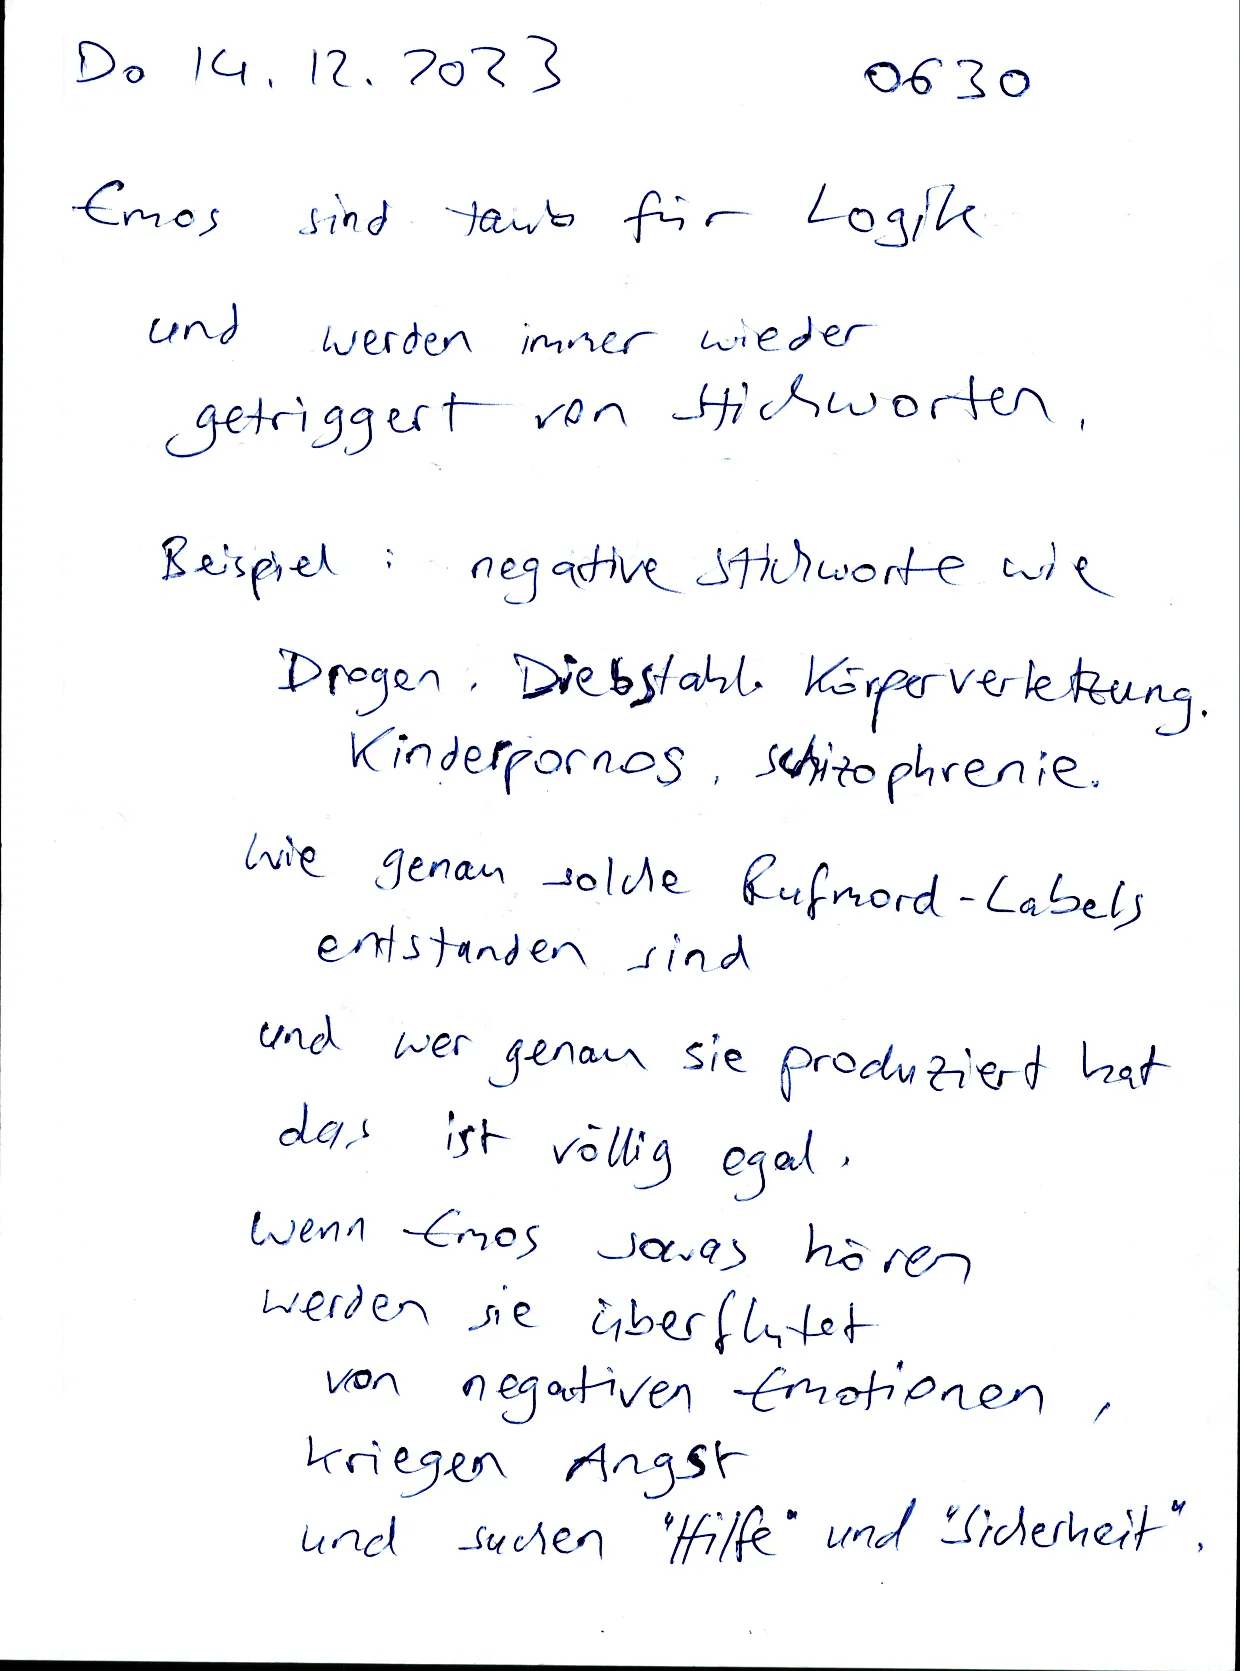 Do 14.12.2023 0630
Emos sind taub für Logik
und werden immer wieder
getriggert von Stichworten.
Beispiel: negative Stichworte wie
Drogen. Diebstahl. Körperverletzung.
Kinderpornos. Schizophrenie.
Wie genau solche Rufmord-Labels
entstanden sind
und wer genau sie produziert hat
das ist völlig egal.
Wenn Emos sowas hören
werden sie überflutet
von negativen Emotionen,
kriegen Angst
und suchen "Hilfe" und "Sicherheit".